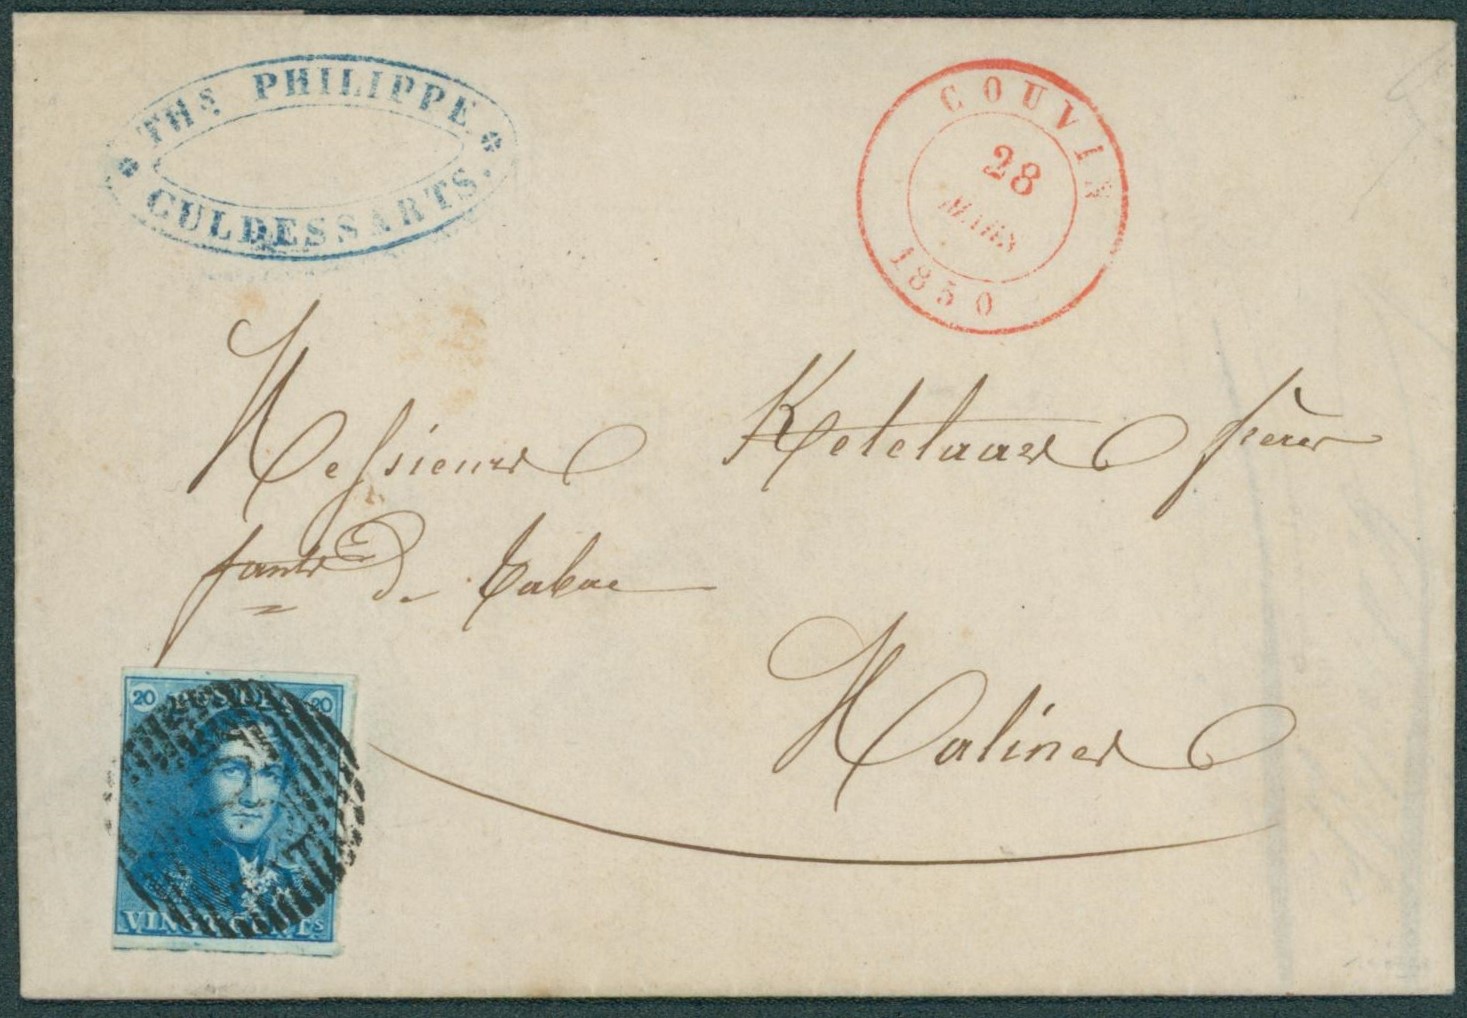 THS PHILIPPE
CULDESSARTS.
COUVIN
28
MARS
1850
Messieurs Ketelaars frères
fants de Tabac
Malines
20 20
VINGT CENTS